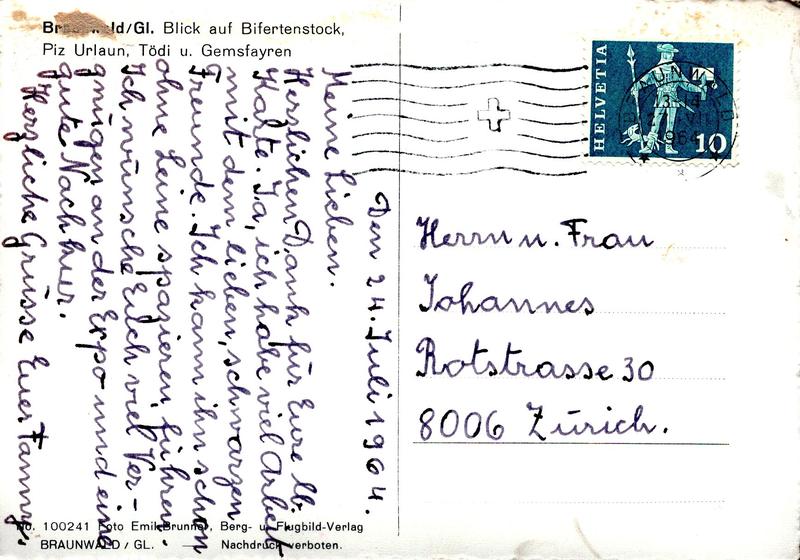 Braunwald/Gl. Blick auf Bifertenstock,
Piz Urlaun, Tödi u. Gemsfayren
Den 24. Juli 1964.
Meine Lieben.
Herzlichen Dank für Eure lb.
Karte. Ja, ich habe viel Arbeit
mit dem lieben, schwarzen
Freunde. Ich kann ihn schon
ohne Leine spazieren führen.
Ich wünsche Euch viel Ver-
gnügen an der Expo und eine
gute Nachkur.
Herzliche Grüsse Euer Fanny.
HELVETIA
10
BRAUNWALD
23.-14
1964
Herrn u. Frau
Johannes
Rotstrasse 30
8006 Zürich.
No. 100241 Foto Emil Brunner, Berg- u. Flugbild-Verlag
BRAUNWALD / GL. — Nachdruck verboten.